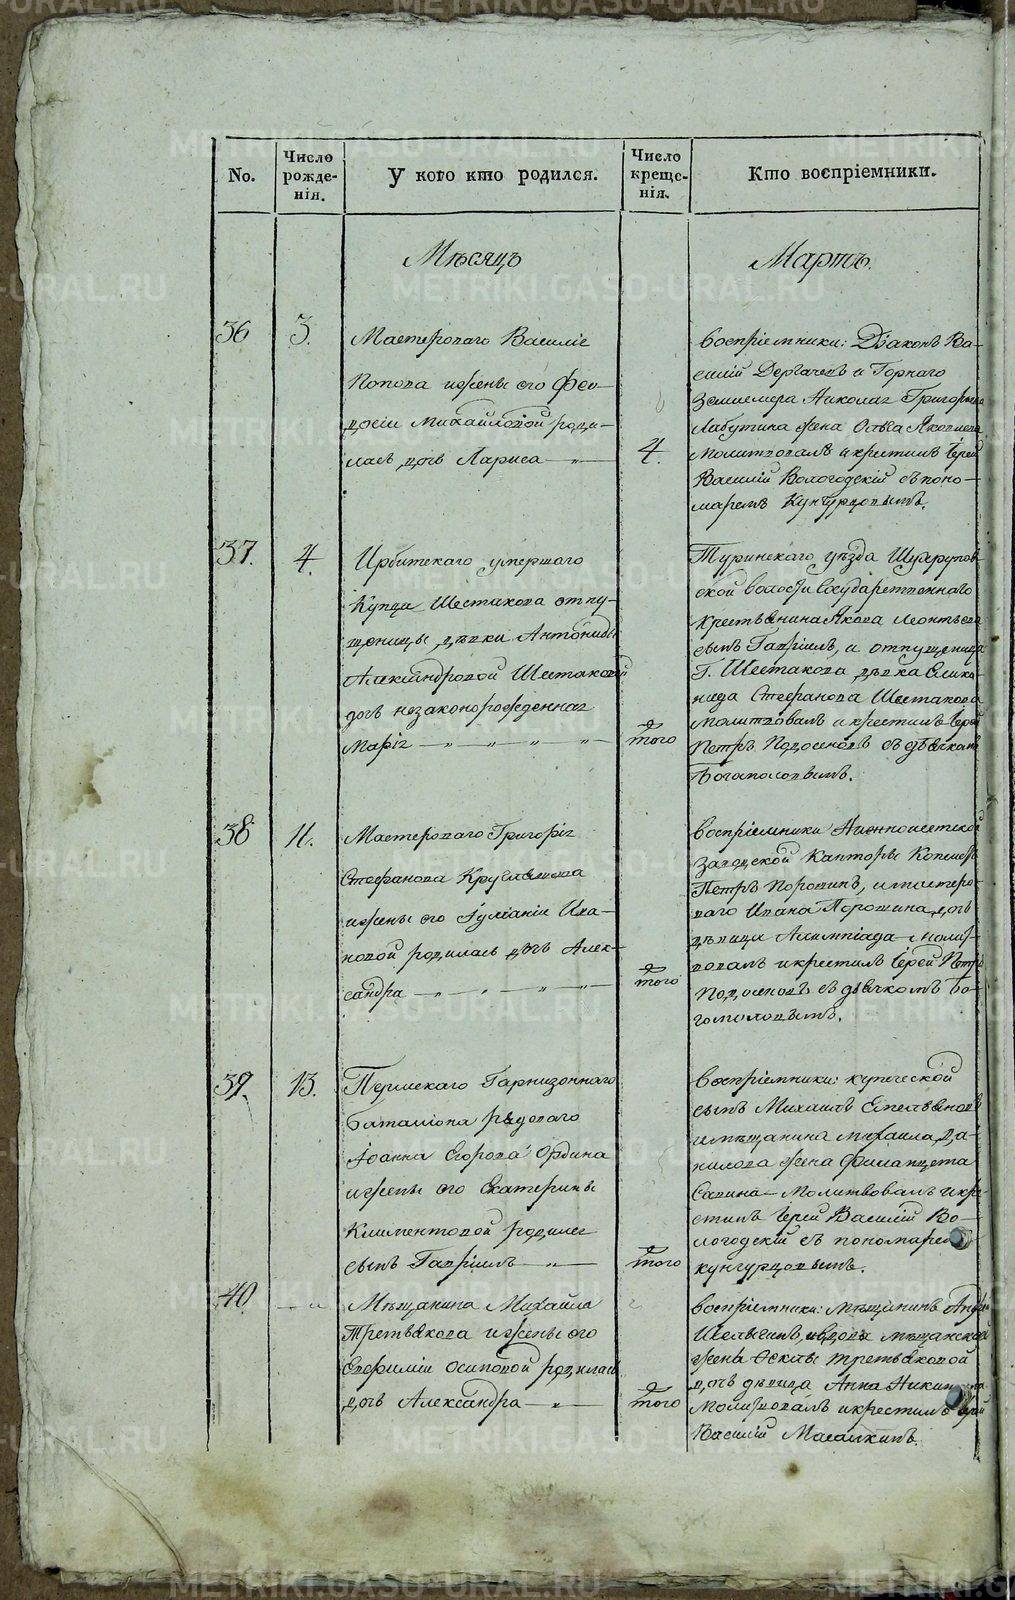 No.
Число
рожде-
нія.
У кого кто родился.
Число
креще-
нія.
Кто воспріемники.
Мѣсяцъ
Мартъ.
36
3.
Мастероваго Василіе
Попова и жены его Фео-
досіи Михайловой роди-
лась дочь Лариса
4.
Воспріемники: Діаконъ Ва-
силій Дергачевъ и Горнаго
Землемера Николая Григорьева
Лабутина жена Ольга Яковлева
Молитвовалъ и крестилъ Іерей
Василій Вологодскій съ поно-
маремъ Кунгурцовымъ.
37.
4.
Ирбитскаго умершаго
Купца Шестакова отпу-
щеницы, дѣвки Антониды
Александровой Шестаковой
дочь незаконорожденная
Марія
того
Туринскаго уѣзда
ской волости Государственнаго
Крестьянина Якова Леонтьева
сынъ Гавріилъ, и отпущеница
Г. Шестакова, дѣвка
Стефанова Шестакова
Молитвовалъ и крестилъ Іерей
Петръ Подосеновъ съ дьячкомъ
Богомоловымъ.
38
11.
Мастероваго Григорія
Стефанова
и жены его Іуліаніи Ива-
новой родилась дочь Алек-
сандра
того
Воспріемники
Заводской Канторы
Петръ Порошинъ, и мастеро-
ваго Ивана Порошина, дочь
дѣвица Алимпіада - молит-
вовалъ и крестилъ Іерей Петръ
Подосеновъ съ дьячкомъ Бо-
гомоловымъ.
39.
13.
Пермскаго Гарнизоннаго
Баталіона рядоваго
Іоанна Егорова Ордина
и жены его Екатерины
Климентовой родился
сынъ Гавріилъ
того
Воспріемники: купеческой
сынъ Михаилъ Емельяновъ
и мѣщанина Михаила Да-
нилова жена Филанцета
Савина - Молитвовалъ и кре-
стилъ Іерей Василій Во-
логодскій съ пономаремъ
Кунгурцовымъ.
40.
Мѣщанина Михайла
Третьякова и жены его
Евфиміи Осиповой родилась
дочь Александра
того
Воспріемники: Мѣщанинъ
мѣщанской
жены Феклы Третьяковой
дочь дѣвица Анна
Молитвовалъ и крестилъ Іерей
Василій
METRIKI.GASO-URAL.RU